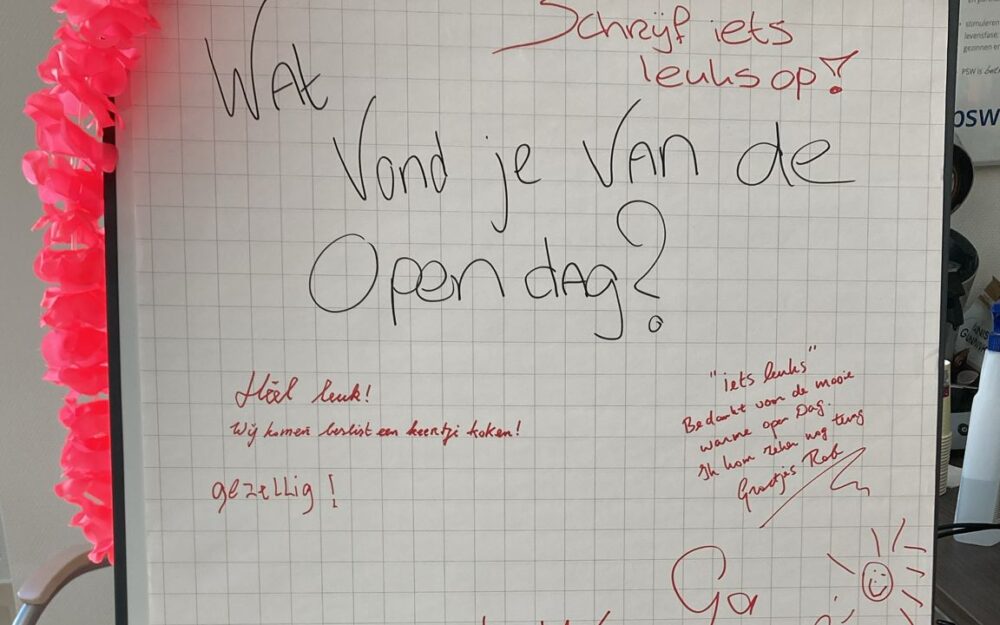 Schrijf iets
leuks op!
Wat
Vond je van de
Open dag?
Héél leuk!
Wij komen beslist een keertje koken!
gezellig!
"iets leuks"
Bedankt voor de mooie
warme open Dag.
Ik kom zeker nog terug
Groetjes Rob
Ga
stimuleren
levensfase
gezonnen en
PSW is
psw